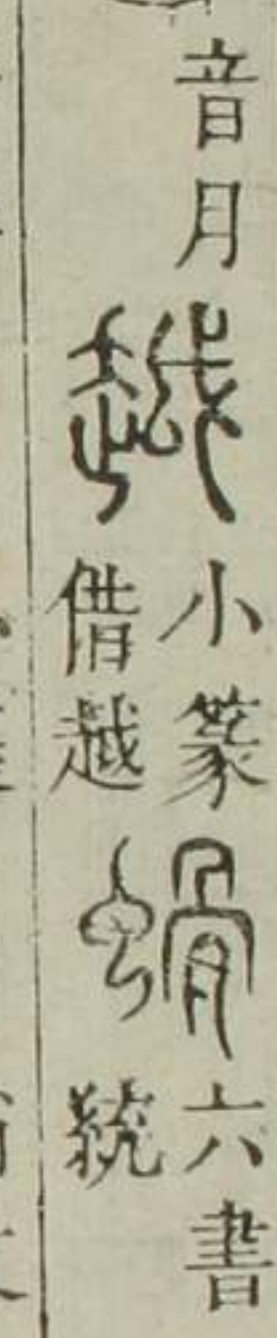 音月
越
小篆
借越
螖
六書
統